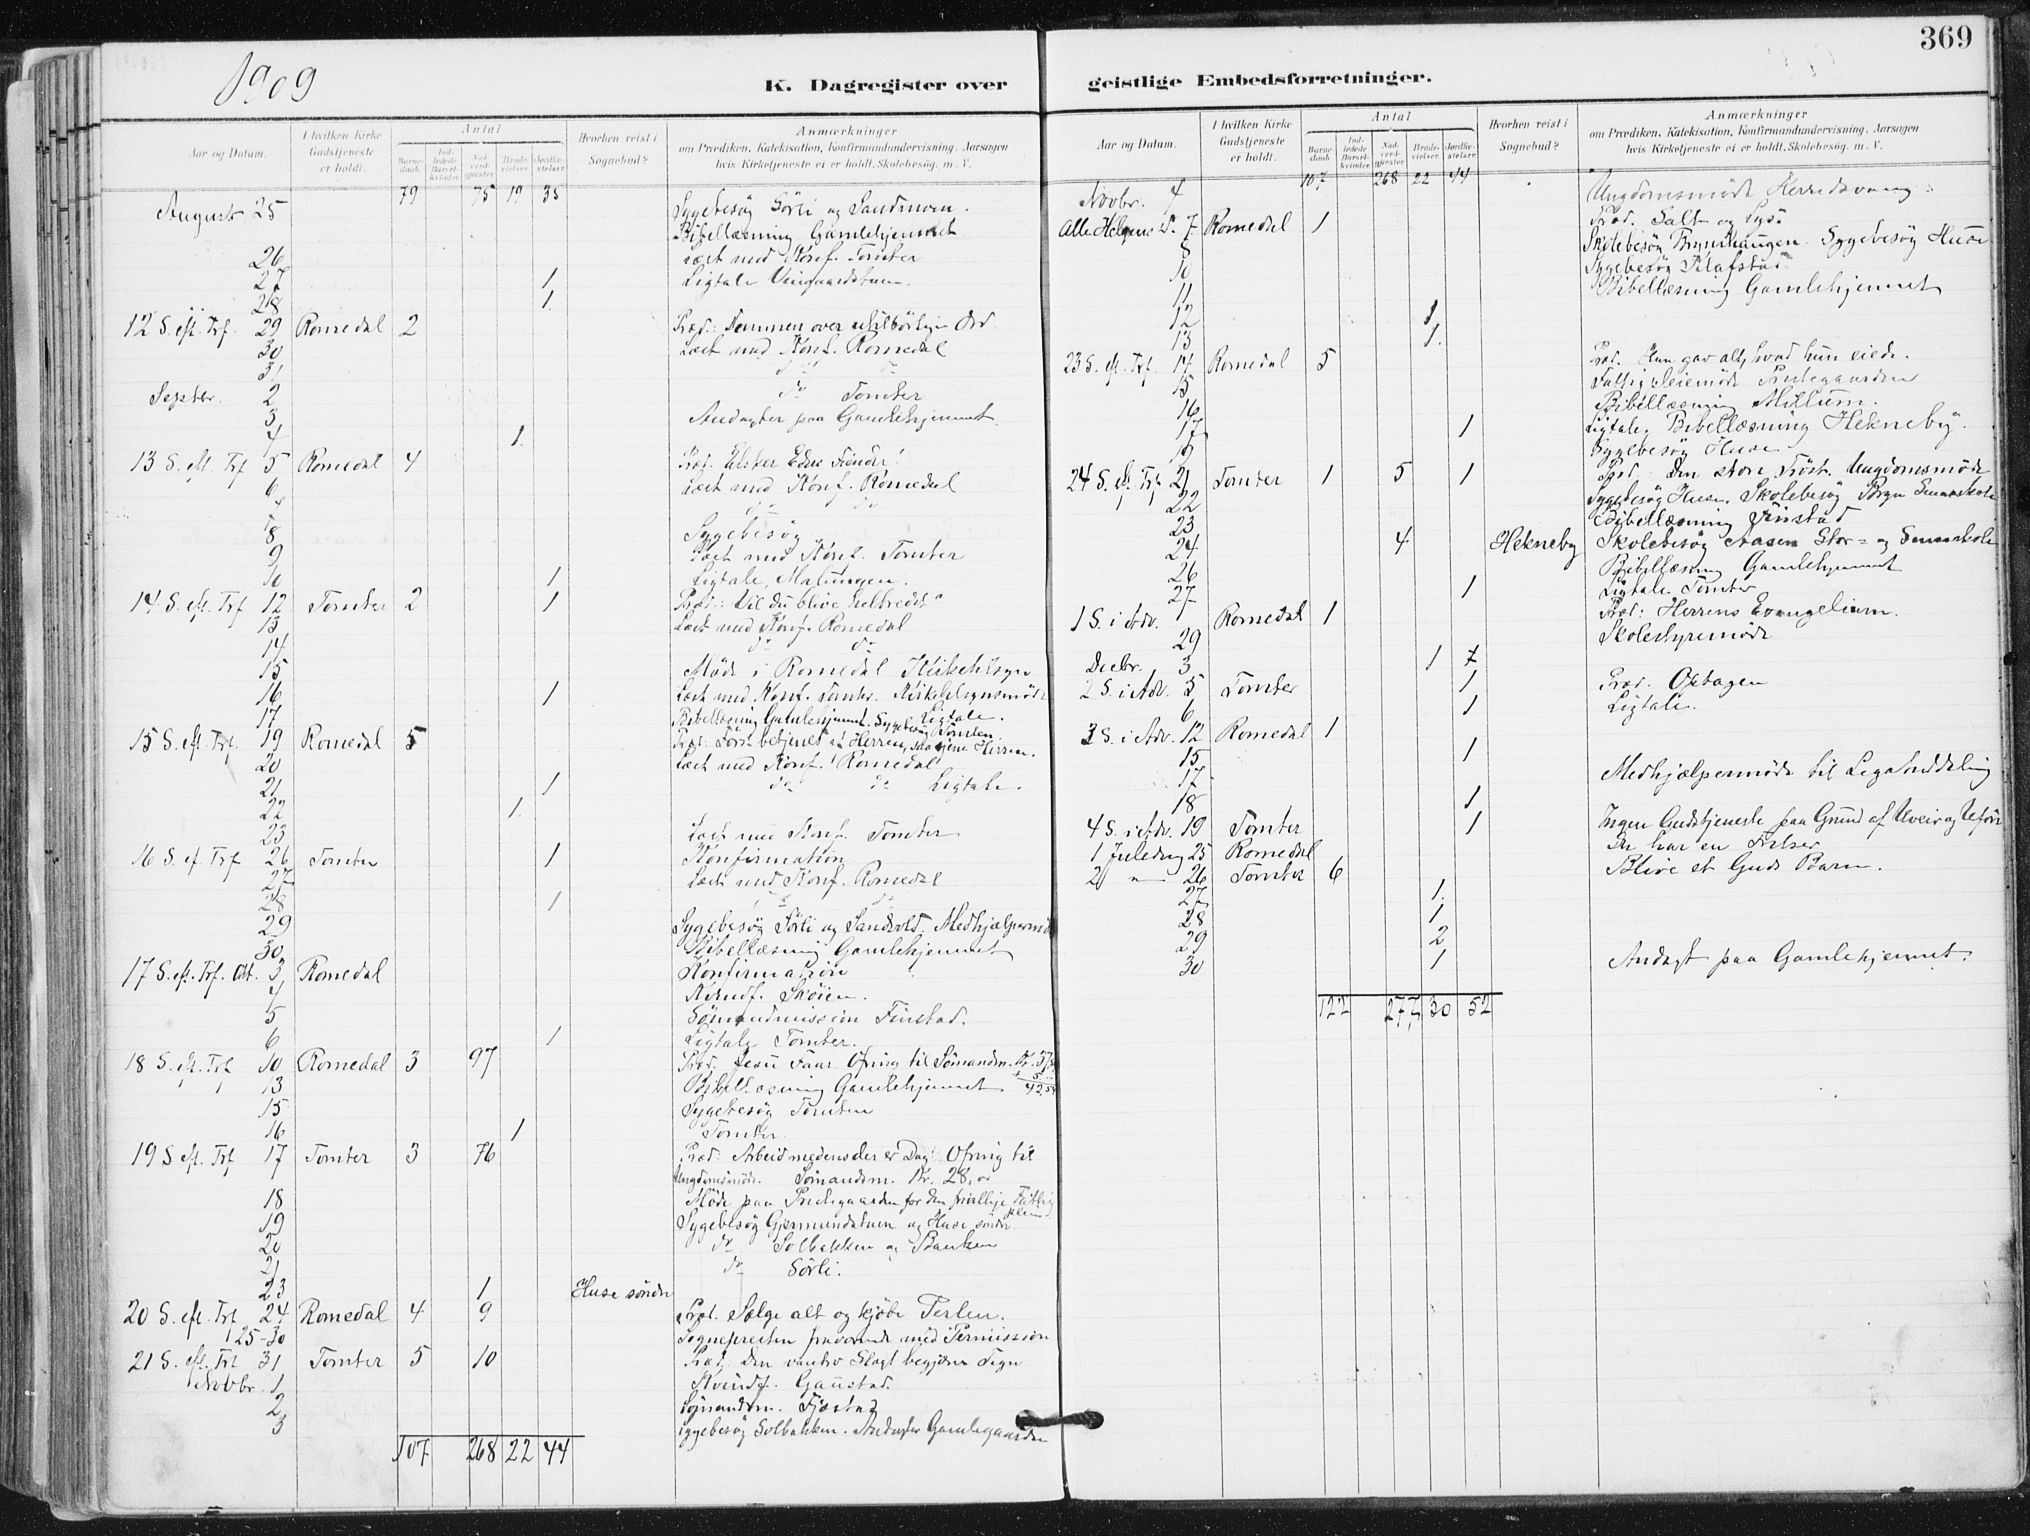 369
1909
K. Dagregister over geistlige Embedsforretninger.
Aar og Datum. I hvilken Kirke Gudstjeneste er holdt. Antal Barnedaab. Indledede Barselkvinder. Nadverdgjester. Brudevielser. Jordfæstelser. Hvorhen reist i Sognebud? Anmærkninger om Prædiken, Katekisation, Konfirmandundervisning, Aarsagen hvis Kirketjeneste ei er holdt, Skolebesøg, m. V.
79 75 19 35
August 25 Sygebesög Sörli og Sandmoen.
Bibellæsning Gamlehjemmet
26 Læst med Konf. Tomter
27 1 Ligtale
28 1.
12 S. eft. Trf. 29 Romedal 2 Præd.: Dommen over utilbörlige Ord.
30 Læst med Konf. Romedal
31 do do
Septbr. 2 do Tomter
3 Andagter paa Gamlehjemmet.
4 1.
13 S. eft. Trf 5 Romedal 4 Præd. Elsker Eders Fiender!
6 Læst med Konf. Romedal
7 do do
8 Sygebesög
9 Læst med Konf. Tomter
10 1 Ligtale, Malungen.
14 S. eft. Trf 12 Tomter 2 1 Præd.: Vil du blive helbredet
13 Læst med Konf. Romedal
14 do do
15 Möde i Romedal Kirketilsyn
16 1 Læst med Konf. Tomter. Kirketilsynsmöde
17 Bibellæsning Gamlehjemmet. Sygebesög Tomter. Ligtale.
15 S. eft. Trf. 19 Romedal 5 Præd: Först betjenes af Herren, saa tjene Herren.
20 Læst med Konf. Romedal
21 1 do do Ligtale.
22 1.
23 Læst med Konf. Tomter
16 S. ef. Trf 26 Tomter 1 Konfirmation
27 Læst med Konf. Romedal
28 1 do
29 Sygebesög Sörli og Sandvold. Medhjælpermöde
30 Bibellæsning Gamlehjemmet
17 S. eft. Trf. Okt. 3 Romedal Konfirmation
4 Kvindf. Sköien.
5 Sömandsmission Finstad.
6 1 Ligtale Tomter.
18 S. eft. Trf 10 Romedal 3 97 Præd. Jesu Faar. Ofring til Sömandsm. Kr. 37,
13 Bibellæsning Gamlehjemmet 42,54
15 Sygebesög Tomter
16 1 Tomter.
19 S eft. Trf 17 Tomter 3 76 Præd: Arbeid medens der er Dag! Ofring til
Ungdomsmöde. Sömandsm. Kr. 28,00
18 Möde paa Prestegaarden for den frivillige Fattigpleie
19 Sygebesög Gjermundstuen og Huse söndre
20 do Solbakken og Bakken
21 do Sörli.
23 1 Huse söndre
20 S. eft. Trf 24 Romedal 4 9 Præd. Sælge alt og kjöbe Perlen.
25-30 Sognepresten fraværende med Permission
21 S. eft. Trf 31 Tomter 5 10 Præd. Den vantro Slægt begjærer Tegn
Novbr. 1 Kvindf. Gaustad.
2 Sömandsm. Fjæstad
3 Sygebesög Solbakken. Andagter Gamlegaarden
107 268 22 44
geistlige Embedsforretninger.
Aar og Datum. I hvilken Kirke Gudstjeneste er holdt. Antal Barnedaab. Indledede Barselkvinder. Nadverdgjester. Brudevielser. Jordfæstelser. Hvorhen reist i Sognebud? Anmærkninger om Prædiken, Katekisation, Konfirmandundervisning, Aarsagen hvis Kirketjeneste ei er holdt, Skolebesøg, m. V.
107 268 22 44
Novbr. 4 Ungdomsmöde Herredsvang
Alle Helgens D. 7 Romedal 1 Præd. Salt og Lys.
8 Skolebesög Brynhaugen. Sygebesög Huse
10 Sygebesög
11 Bibellæsning Gamlehjemmet
12 1
13 1.
23 S. eft. Trf. 14 Romedal 5 Præd. Hun gav alt, hvad hun eiede.
15 Fattigpleiemöde Prestegaarden
16 Bibellæsning Millum.
17 1 Ligtale. Bibellæsning Hekneby.
19 Sygebesög Huse
24 S. eft. Trf. 21 Tomter 1 5 1 Præd. Den store Tröst. Ungdomsmöde
22 Sygebesög Huse. Skolebesög Bryn Smaaskole
23 Bibellæsning Finstad
24 4 Hekneby Skolebesög Aasen Stor- og Smaaskole
26 Bibellæsning Gamlehjemmet
27 1 Ligtale Tomter
1 S. i Adv. Romedal 1 Præd: Herrens Evangelium.
29 Skolestyremöde
Decbr. 3 1 7
2 S. i Adv. 5 Tomter 1 Præd. Optagen
6 1 Ligtale.
3 S. i Adv. 12 Romedal 1
15 1
17 Medhjælpermöde til Legatuddeling
18 1
4 S. i Adv. 19 Tomter 1 Ingen Gudstjeneste paa Grund af Uveir og Uföre
1 Juledag 25 Romedal Du har en Frelser
2 — 26 Tomter 6 Blive et Guds Barn.
27 1.
28 1
29 2
30 1 Andagt paa Gamlehjemmet.
122 277 30 52